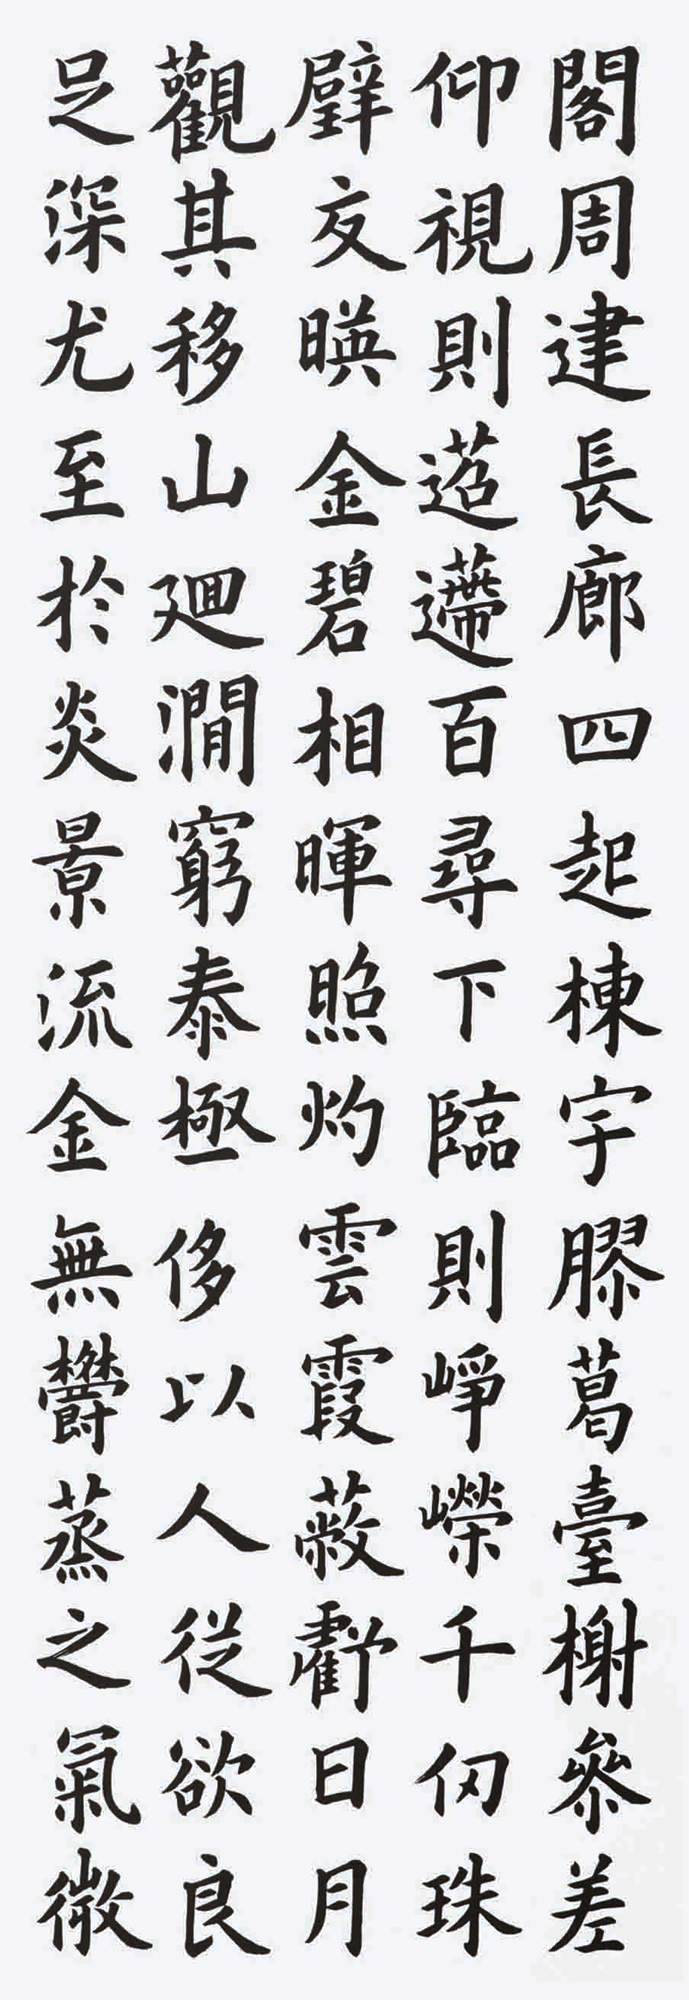 閣周建長廊四起棟宇膠葛臺榭參差
仰視則迢遰百尋下臨則崢嶸千仞珠
壁交暎金碧相暉照灼雲霞蔽虧日月
觀其移山廻澗窮泰極侈以人從欲良
足深尤至於炎景流金無鬱蒸之氣微